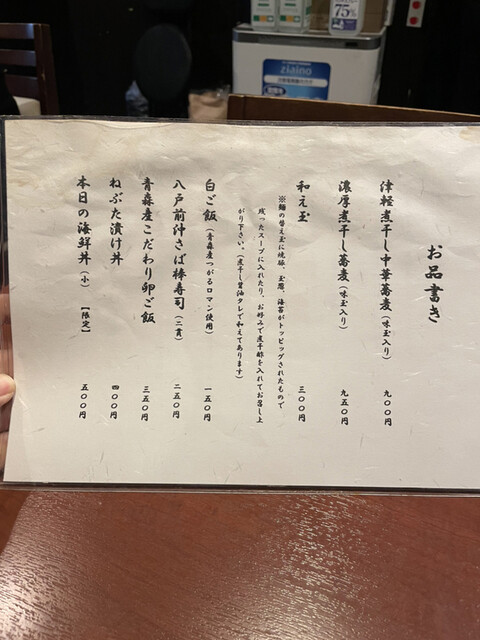 お品書き
津軽煮干し中華蕎麦（味玉入り） 九〇〇円
濃厚煮干し蕎麦（味玉入り） 九五〇円
和え玉 三〇〇円
※麺の替え玉に焼豚、玉葱、海苔がトッピッグされたもので
残ったスープに入れたり、お好みで煮干酢を入れてお召し上
がり下さい。（煮干し醤油タレで和えてあります）
白ご飯（青森産つがるロマン使用） 一五〇円
八戸前沖さば棒寿司（二貫） 二五〇円
青森産こだわり卵ご飯 三五〇円
ねぶた漬け丼 四〇〇円
本日の海鮮丼（小）【限定】 五〇〇円
ziaino
75%